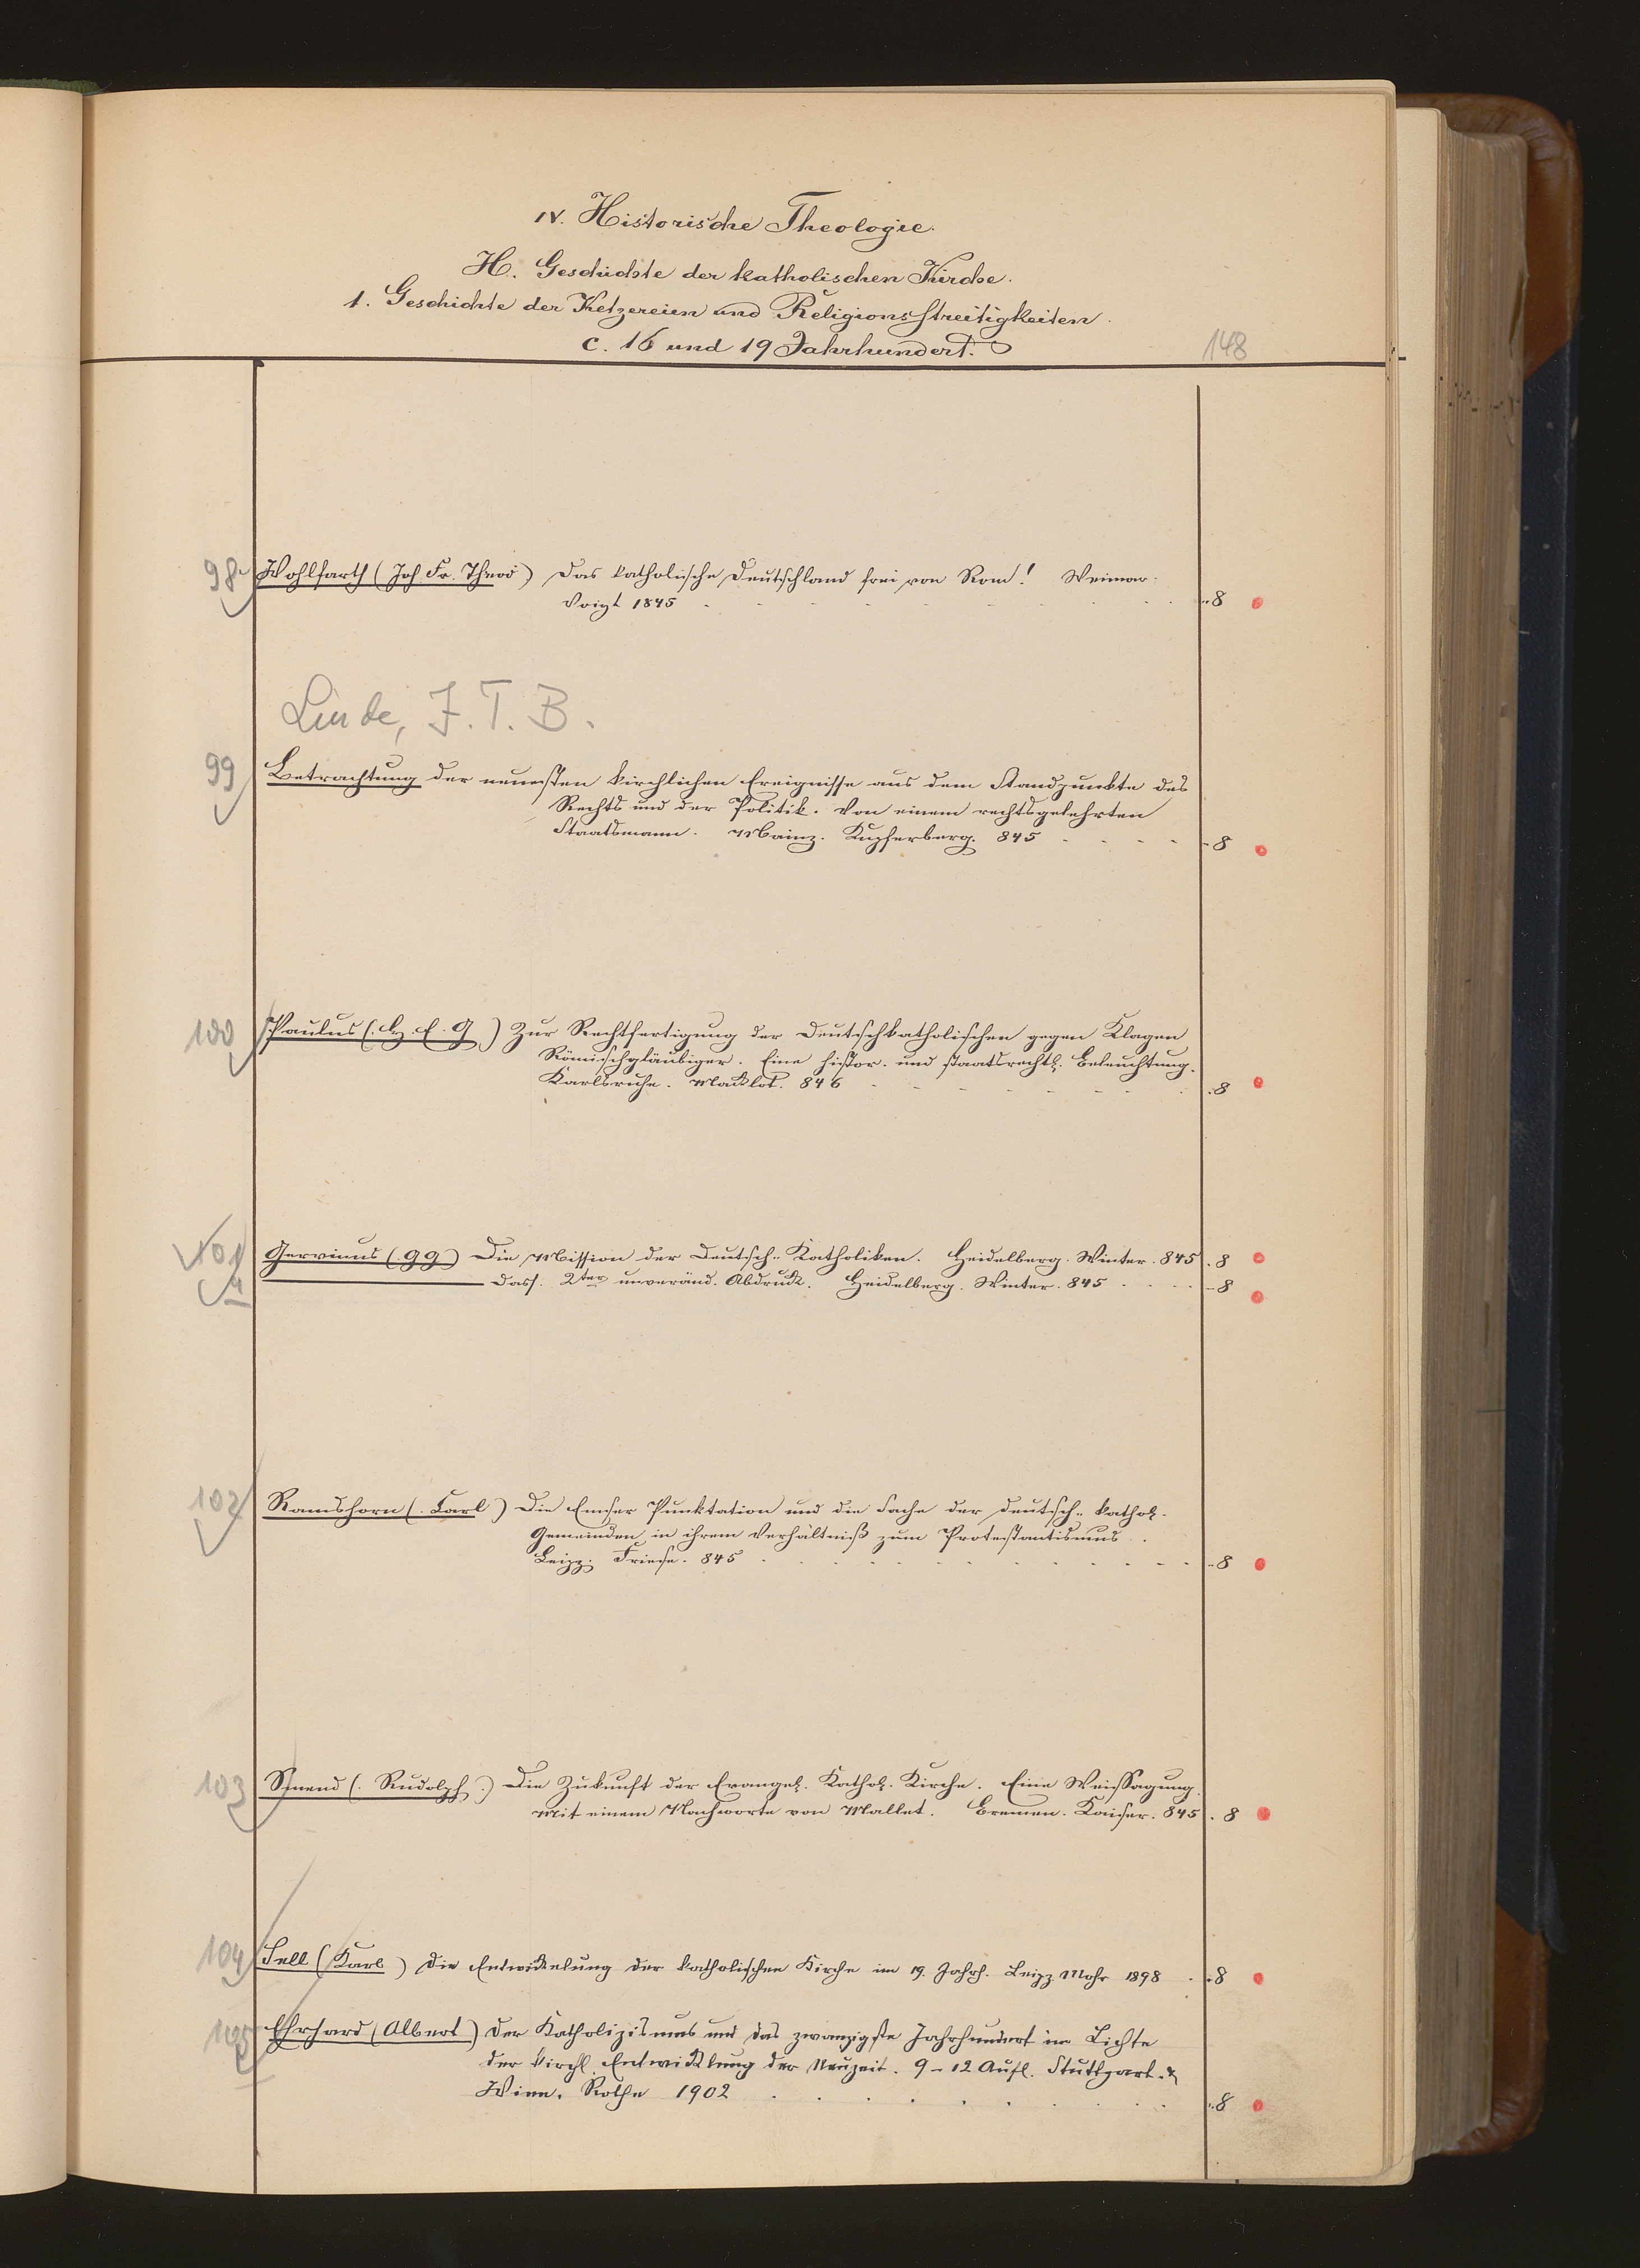 IV. Historische Theologie.
H. Geschichte der katholischen Kirche.
1. Geschichte der Ketzereien und Religionsstreitigkeiten.
c. 16 und 19 Jahrhundert.
148
98 Wohlfarth (Joh. Fr. Theod) Das katholische Deutschland frei von Rom! Weimar.
Voigt 1845 . . . . . . . . . 8
Linde, J. T. B.
99 Betrachtung der neuesten kirchlichen Ereignisse aus dem Standpunkte des
Rechts und der Politik. Von einem rechtsgelehrten
Staatsmann. Mainz. Kupferberg. 845 - - - - 8
100 Paulus (H. E. G) Zur Rechtfertigung der Deutschkatholischen gegen Klagen
Römischgläubiger. Eine histor. und staatsrechtl. Beleuchtung.
Karlsruhe. Macklot. 846 - - - - - - - - 8
101 Gervinus (GG) Die Mission der Deutsch-Katholiken. Heidelberg. Winter. 845 . 8
dass. 2ter unveränd. Abdruck. Heidelberg. Winter. 845 . . . - 8
102 Ramshorn (Carl) Die Emser Punktation und die Sache der deutsch-kathol.
Gemeinden in ihrem Verhältniß zum Protestantismus.
Leipz. Friese. 845 . . . . . . . . . 8
103 Smend (Rudolph) Die Zukunft der Evangel. Kathol. Kirche. Eine Weissagung.
Mit einem Nachworte von Mallet. Bremen. Kaiser. 845 . 8
104 Sell (Karl) Die Entwickelung der katholischen Kirche im 19. Jahrh. Leipz Mohr 1898 . . 8
105 Ehrhard (Albert) Der Katholizismus und das zwanzigste Jahrhundert im Lichte
der kirchl. Entwicklung der Neuzeit. 9-12 Aufl. Stuttgart &
Wien. Rothe 1902 . . . . . . . . 8